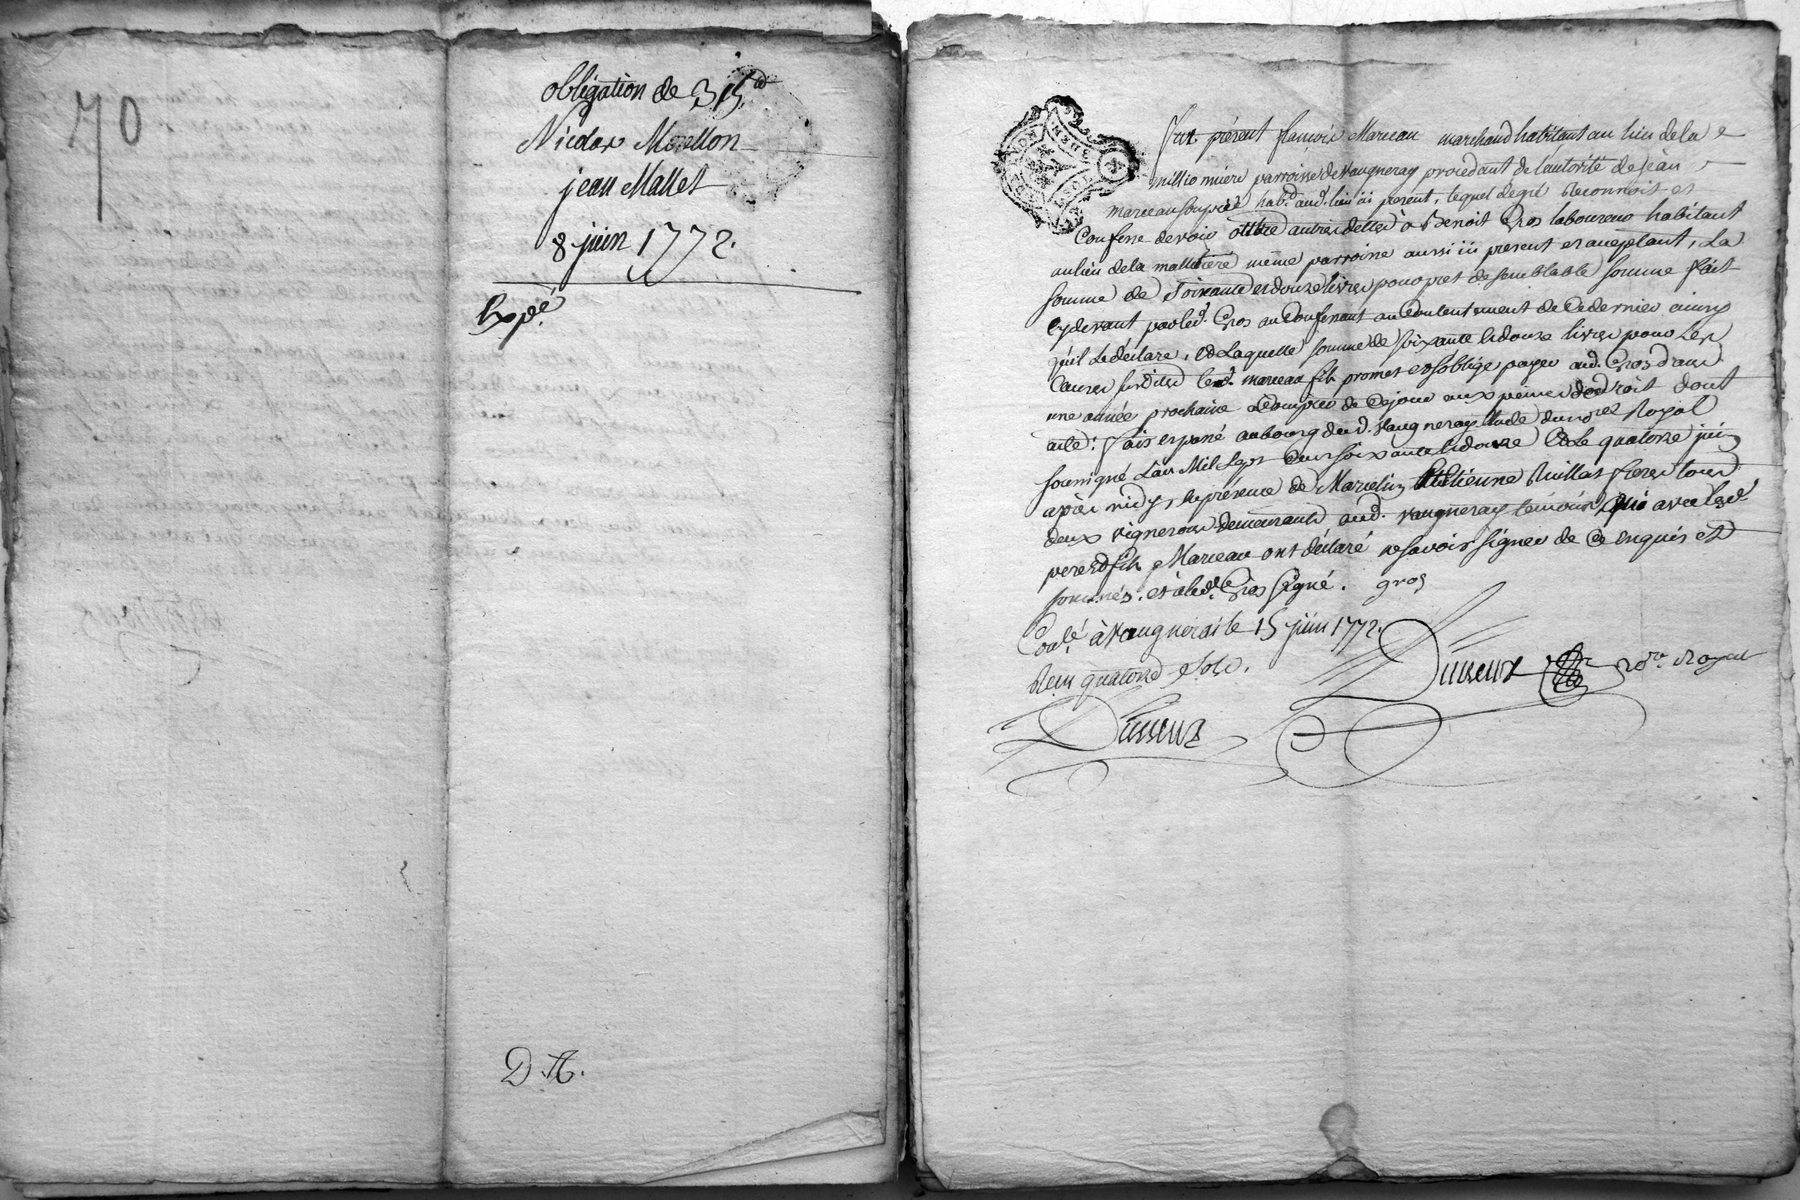 70
obligation de 315 lt
Nicolas Morellon
jean Mallet
8 juin 1772.
Expé.
D. A.
fut présent francois Marceau marchand habitant au lieu de la
millionniere parroisse de Vaugneray procedant de l'autorité de Jean
marceau son pere habt. aud. lieu ici present, lequel de gré reconnoit et
Confesse devoir outre autres dettes à Benoit Gros laboureur habitant
au lieu de la malletiere même parroisse aussi ici present et acceptant, La
somme de Soixante et douze livres pour pret de semblable somme fait
cy devant par led. Gros au Confessant au Contentement de Ce dernier ainsy
quil Le déclare, et Laquelle somme de soixante et douze livres pour Les
Causes susdites led. marceau fils promet et soblige payer aud. Gros dans
une année prochaine a Compter de Ce jour aux peines de droit dont
acte. fait et passé au bourg dud. Vaugneray Etude du nore. Royal
soussigné L'an Mil sept Cent soixante et douze Et Le quatorze juin
après midy, En présence de Marcelin Et Etienne Ruillat freres tous
deux vignerons demeurants aud. vaugneray temoins, qui avec lesd.
pere et fils Marceau ont déclaré ne savoir signer de Ce enquis et
sommés. et a led. Gros signé. gros
Conlé. à Vaugnerai le 15 juin 1772.
Recu quatorze sols.
nore. Royal